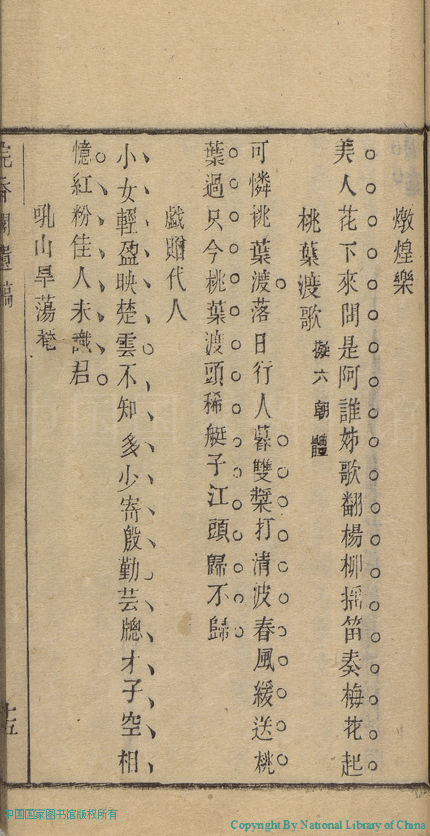 燉煌樂
美人花下來問是阿誰姊歌翻楊柳搖笛奏梅花起
桃葉渡歌 擬六朝體
可憐桃葉渡落日行人暮雙槳打清波春風緩送桃
葉過只今桃葉渡頭稀艇子江頭歸不歸
戲贈代人
小女輕盈映楚雲不知多少寄殷勤芸牕才子空相
憶紅粉佳人未識君
吼山旱蕩菴
十五
中国国家图书馆版权所有
Copyright By National Library of China